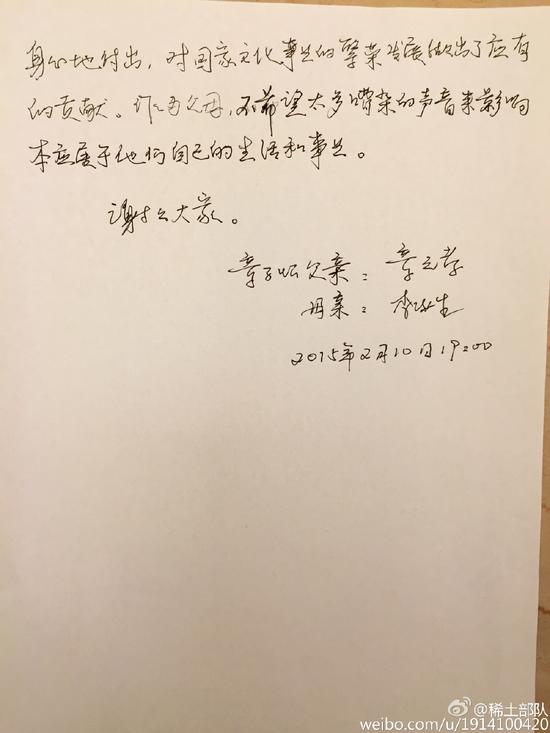 身心地付出，对国家文化事业的繁荣发展做出了应有
的贡献。作为父母，不希望太多嘈杂的声音来影响
本应属于他们自己的生活和事业。
谢谢大家。
章子怡父亲：章元孝
母亲：李涿生
2015年2月10日19:00
@稀土部队
weibo.com/u/1914100420